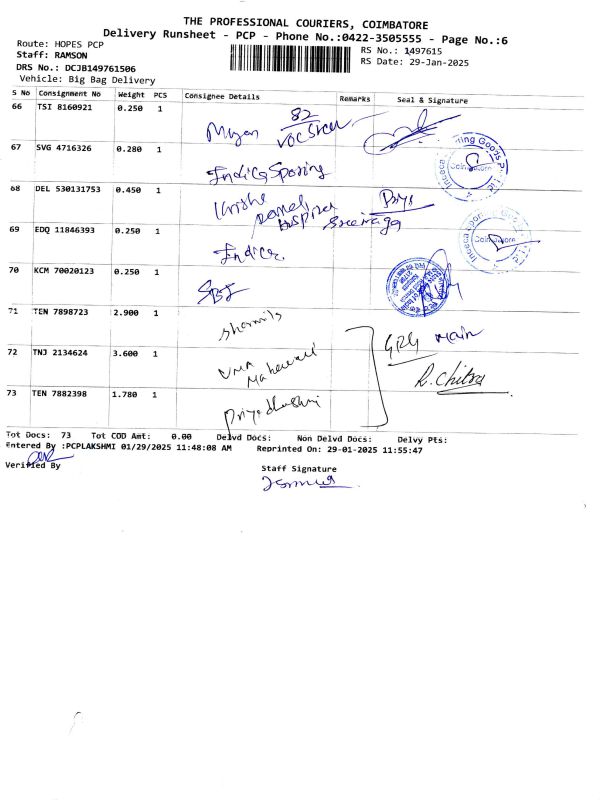 THE PROFESSIONAL COURIERS, COIMBATORE
Delivery Runsheet - PCP - Phone No.:0422-3505555 - Page No.:6
Route: HOPES PCP
RS No.: 1497615
Staff: RAMSON
RS Date: 29-Jan-2025
DRS No.: DCJB149761506
Vehicle: Big Bag Delivery
S No Consignment No Weight PCS Consignee Details Remarks Seal & Signature
66 TSI 8160921 0.250 1
82
67 SVG 4716326 0.280 1
Indica
68 DEL 530131753 0.450 1
69 EDQ 11846393 0.250 1
Indica
Coimbatore
70 KCM 70020123 0.250 1
SBI
71 TEN 7898723 2.900 1
Sharmila
GRG Main
72 TNJ 2134624 3.600 1
UMA
R. Chitra
73 TEN 7882398 1.780 1
Tot Docs: 73 Tot COD Amt: 0.00 Delvd Docs: Non Delvd Docs: Delvy Pts:
Entered By :PCPLAKSHMI 01/29/2025 11:48:08 AM Reprinted On: 29-01-2025 11:55:47
Verified By
Staff Signature